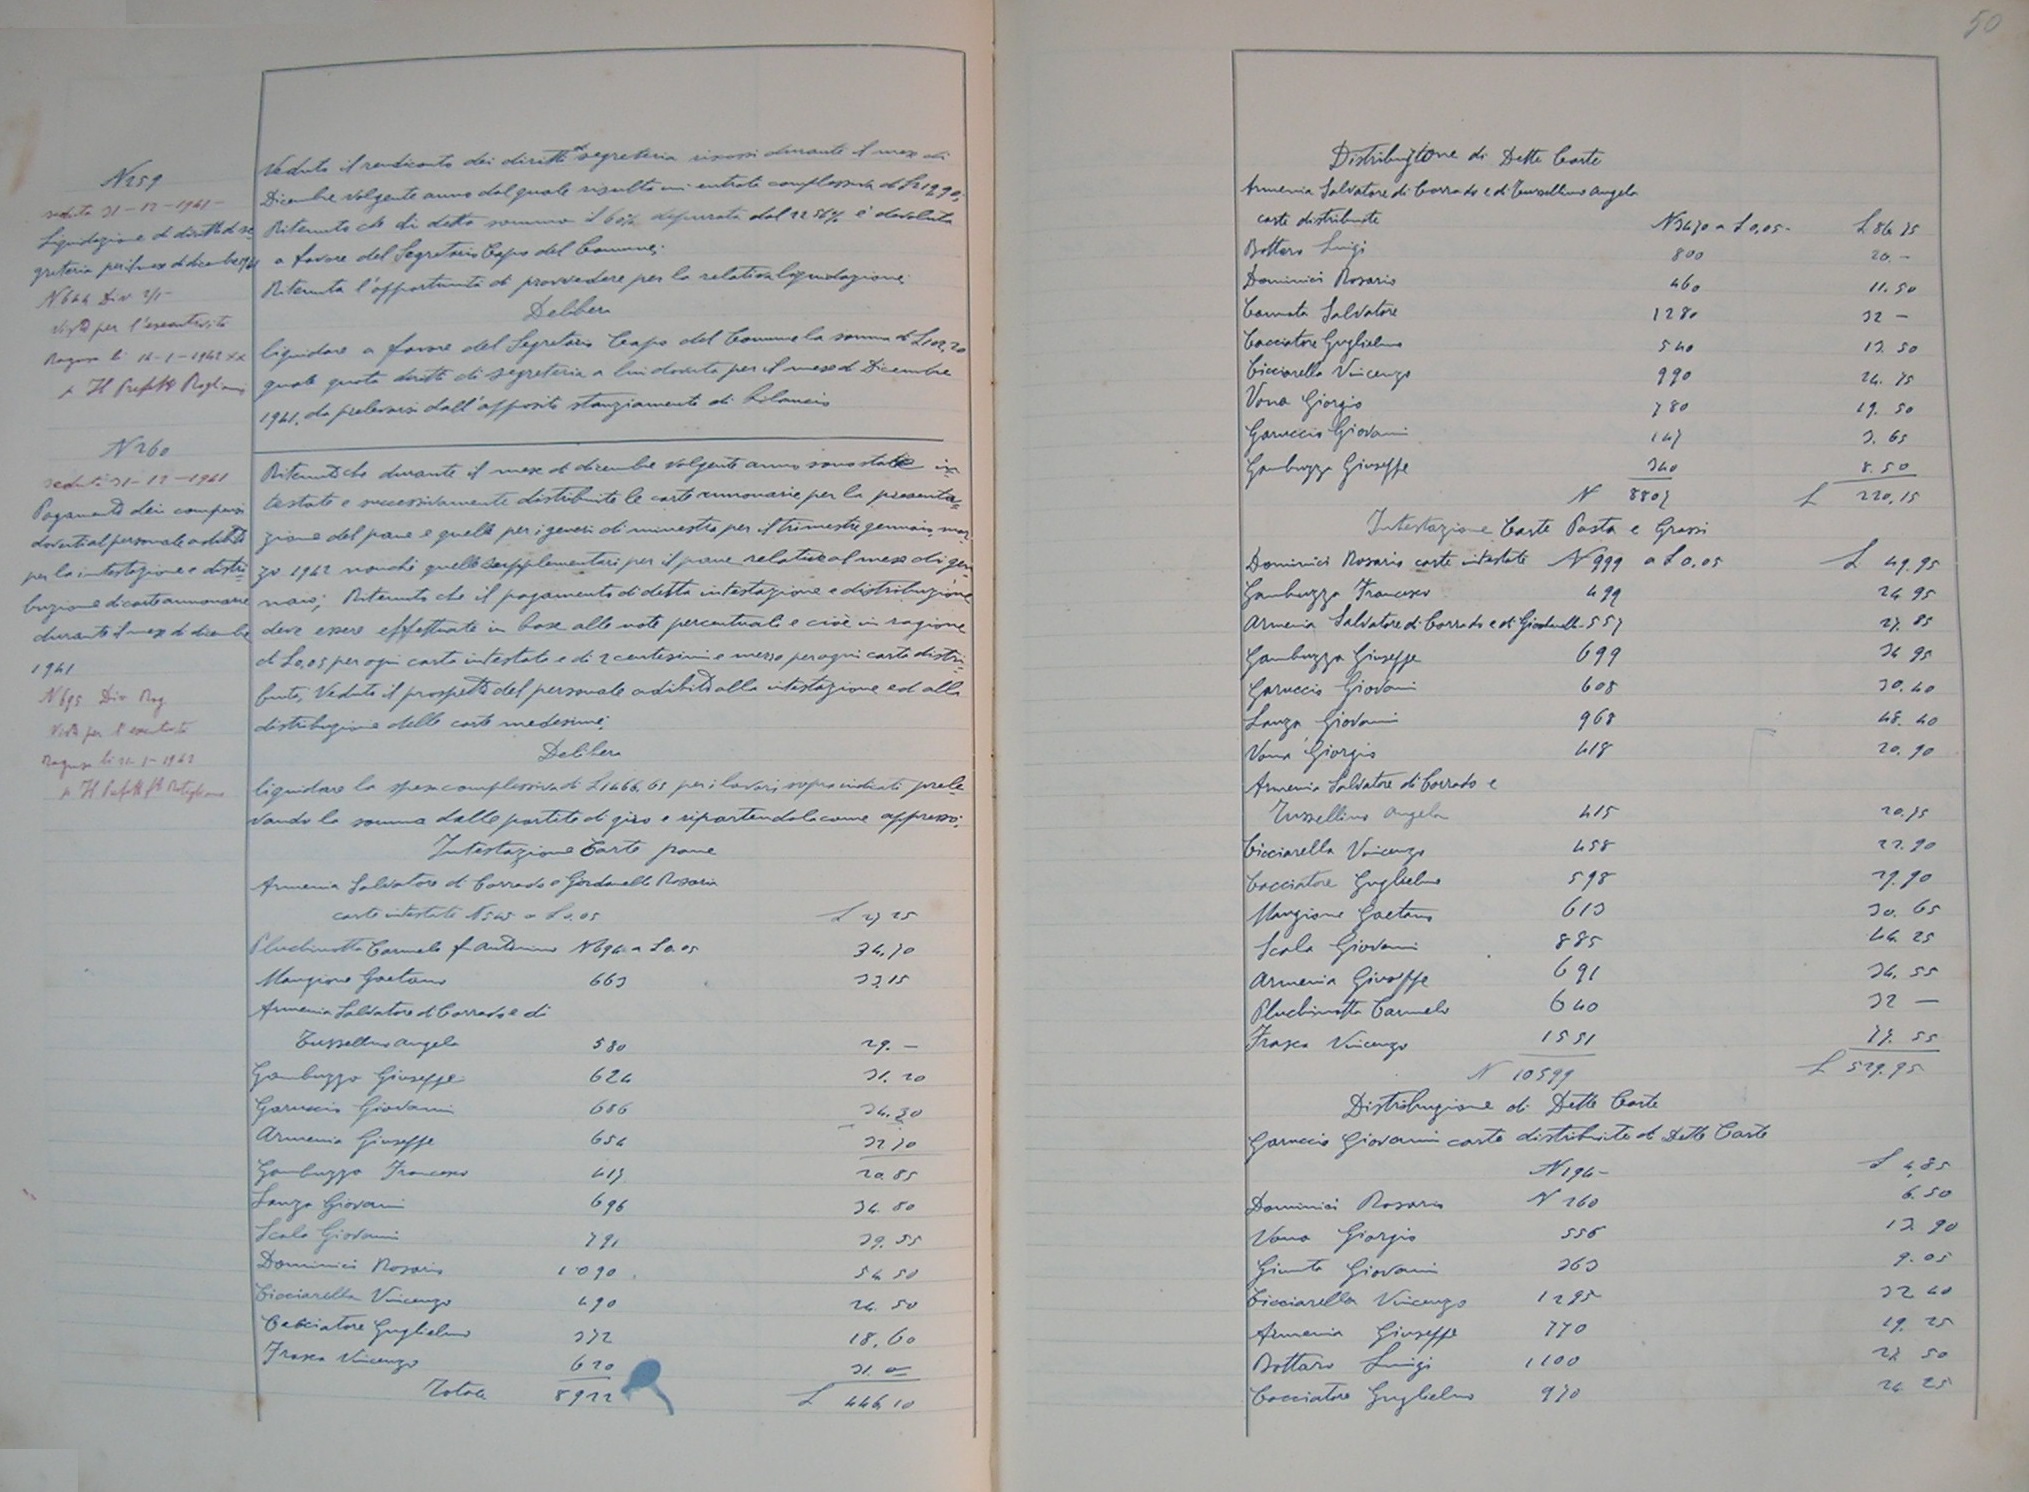 N 259
seduta 31-12-1941-
Liquidazione di diritti di se
greteria per il mese di dicembre 1941
N 644 Div 2/1-
Visto per l'esecutività
Ragusa li 14-1-1942 XX
p Il Prefetto
Veduto il rendiconto dei diritti di segreteria riscossi durante il mese di
Dicembre volgente anno dal quale risulta un'entrata complessiva di
Ritenuto che di detta somma il 60% depurata dal è devoluta
a favore del Segretario Capo del Comune;
Ritenuta l'opportunità di provvedere per la relativa liquidazione;
Delibera
liquidare a favore del Segretario Capo del Comune la somma di
quale quota diritti di segreteria a lui dovuta per il mese di Dicembre
1941, da prelevarsi dall'apposito stanziamento di bilancio
N 260
seduta 31-12-1941
Pagamento dei compensi
dovuti al personale adibito
per la intestazione e distri-
buzione di carte annonarie
durante il mese di dicembre
1941
N 695 Div Rag
Visto per l'esecutività
Ragusa li 21-1-1942
p Il Prefetto
Ritenuto che durante il mese di dicembre volgente anno sono state in=
testate e successivamente distribuite le carte annonarie per la presenta=
zione del pane e quelle per i generi di minestra per il trimestre gennaio mar
zo 1942 nonchè quelle supplementari per il pane relative al mese di gen
naio; Ritenuto che il pagamento di detta intestazione e distribuzione
deve essere effettuato in base alle note percentuali e cioè in ragione
di £0,05 per ogni carta intestata e di 2 centesimi e mezzo per ogni carta distri-
buita, Veduto il prospetto del personale adibito alla intestazione ed alla
distribuzione delle carte medesime;
Delibera
liquidare la spesa complessiva di £1466,65 per i lavori sopra indicati prele
vando la somma dalle partite di giro e ripartendola come appresso:
Intestazione Carte pane
Armenia Salvatore di Corrado e Giordanella Rosaria
carte intestate N 545 a £0.05 £ 27 25
Pluchinotta Carmelo fu Antonino N 694 a £0.05 34,70
Mangione Gaetano 663 33,15
Armenia Salvatore di Corrado e di
Tussellino Angela 580 29. —
Gambuzza Giuseppe 624 31. 20
Garuccio Giovanni 686 34.30
Armenia Giuseppe 654 32 70
Gambuzza Francesco 417 20.85
Lanza Giovanni 696 34. 80
Scala Giovanni 791 39. 55
Dominici Rosario 1090 54 50
Cicciarella Vincenzo 490 24. 50
Cacciatore Guglielmo 372 18.60
Frasca Vincenzo 620 31. =
Totale 8922 £ 446,10
50
Distribuzione di Dette Carte
Armenia Salvatore di Corrado e di Tussellino Angela
carte distribuite N 3470 a £0,05- £ 86.75
Bottaro Luigi 800 20. —
Dominici Rosario 460 11.50
Cannata Salvatore 1280 32 —
Cacciatore Guglielmo 540 13. 50
Cicciarella Vincenzo 990 24. 75
Vona Giorgio 780 19. 50
Garuccio Giovanni 147 3. 65
Gambuzza Giuseppe 340 8. 50
N 8807 £ 220,15
Intestazione Carte Pasta e Grassi
Dominici Rosario carte intestate N 999 a £0.05 £ 49.95
Gambuzza Francesco 499 24 95
Armenia Salvatore di Corrado e di Giordanella 557 27. 85
Gambuzza Giuseppe 699 34 95
Garuccio Giovanni 608 30.40
Lanza Giovanni 968 48. 40
Vona Giorgio 418 20.90
Armenia Salvatore di Corrado e
Tussellino Angela 415 20.75
Cicciarella Vincenzo 458 22.90
Cacciatore Guglielmo 598 29.90
Mangione Gaetano 613 30. 65
Scala Giovanni 885 44. 25
Armenia Giuseppe 691 34. 55
Pluchinotta Carmelo 640 32 —
Frasca Vincenzo 1551 77. 55
N 10599 £ 529.95
Distribuzione di Dette Carte
Garuccio Giovanni carte distribuite di Dette Carte
N 194- £ 4,85
Dominici Rosario N 260 6.50
Vona Giorgio 556 13. 90
Giunta Giovanni 363 9.05
Cicciarella Vincenzo 1295 32 40
Armenia Giuseppe 770 19. 25
Bottaro Luigi 1100 27. 50
Cacciatore Guglielmo 970 24. 25